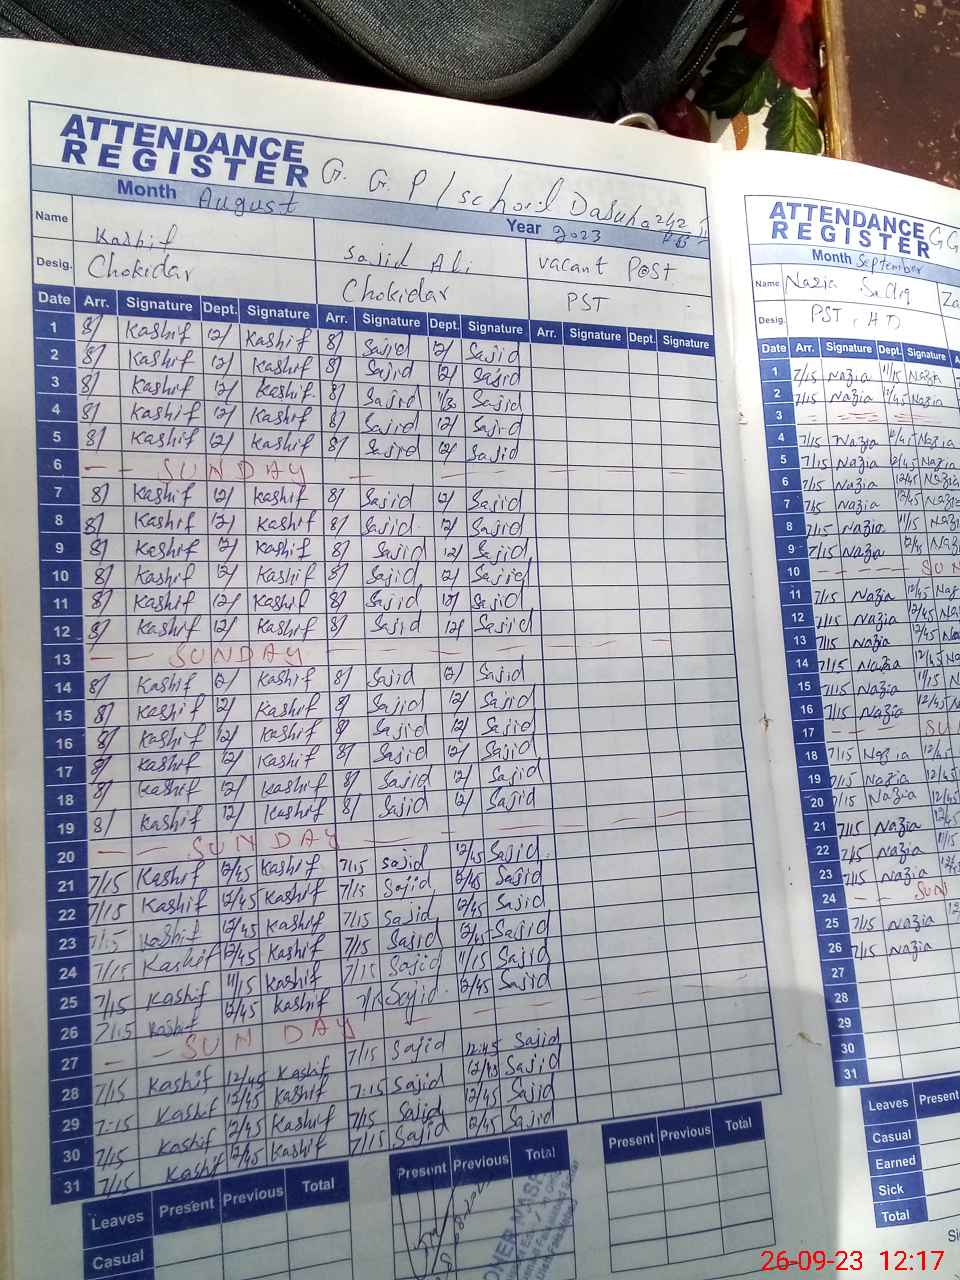 ATTENDANCE
REGISTER G. G. P / School Dasuha 242
Month August Year 2023
Name Kashif Sajid Ali vacant Post
Desig. Chokidar Chokidar PST
Date Arr. Signature Dept. Signature Arr. Signature Dept. Signature Arr. Signature Dept. Signature
1 8/ Kashif 12/ Kashif 8/ Sajid 12/ Sajid
2 8/ Kashif 12/ Kashif 8/ Sajid 12/ Sajid
3 8/ Kashif 12/ Kashif 8/ Sajid 11/30 Sajid
4 8/ Kashif 12/ Kashif 8/ Sajid 12/ Sajid
5 8/ Kashif 12/ Kashif 8/ Sajid 12/ Sajid
6 SUNDAY
7 8/ Kashif 12/ Kashif 8/ Sajid 12/ Sajid
8 8/ Kashif 12/ Kashif 8/ Sajid 12/ Sajid
9 8/ Kashif 12/ Kashif 8/ Sajid 12/ Sajid
10 8/ Kashif 12/ Kashif 8/ Sajid 12/ Sajid
11 8/ Kashif 12/ Kashif 8/ Sajid 12/ Sajid
12 8/ Kashif 12/ Kashif 8/ Sajid 12/ Sajid
13 SUNDAY
14 8/ Kashif 12/ Kashif 8/ Sajid 12/ Sajid
15 8/ Kashif 12/ Kashif 8/ Sajid 12/ Sajid
16 8/ Kashif 12/ Kashif 8/ Sajid 12/ Sajid
17 8/ Kashif 12/ Kashif 8/ Sajid 12/ Sajid
18 8/ Kashif 12/ Kashif 8/ Sajid 12/ Sajid
19 8/ Kashif 12/ Kashif 8/ Sajid 12/ Sajid
20 SUNDAY
21 7/15 Kashif 12/45 Kashif 7/15 Sajid 12/45 Sajid
22 7/15 Kashif 12/45 Kashif 7/15 Sajid 12/45 Sajid
23 7/15 Kashif 12/45 Kashif 7/15 Sajid 12/45 Sajid
24 7/15 Kashif 12/45 Kashif 7/15 Sajid 12/45 Sajid
25 7/15 Kashif 11/15 Kashif 7/15 Sajid 11/15 Sajid
26 7/15 Kashif 12/45 Kashif 7/15 Sajid 12/45 Sajid
27 SUNDAY
28 7/15 Kashif 12/45 Kashif 7/15 Sajid 12:45 Sajid
29 7:15 Kashif 12/45 Kashif 7:15 Sajid 12/45 Sajid
30 7/15 Kashif 12/45 Kashif 7/15 Sajid 12/45 Sajid
31 7/15 Kashif 12/45 Kashif 7/15 Sajid 12/45 Sajid
Leaves Present Previous Total Present Previous Total Present Previous Total
Casual
ATTENDANCE
REGISTER GG
Month September
Name Nazia Sadiq Za
Desig. PST, HT
Date Arr. Signature Dept. Signature
1 7/15 Nazia 11/15 Nazia
2 7/15 Nazia 12/45 Nazia
3
4 7/15 Nazia 12/45 Nazia
5 7/15 Nazia 12/45 Nazia
6 7/15 Nazia 12/45 Nazia
7 7/15 Nazia 12/45 Nazia
8 7/15 Nazia 11/15 Nazia
9 7/15 Nazia 12/45 Nazia
10 SUN
11 7/15 Nazia 12/45 Naz
12 7/15 Nazia 12/45 Na
13 7/15 Nazia 12/45 Na
14 7/15 Nazia 12/45 Na
15 7/15 Nazia 11/15 N
16 7/15 Nazia 12/45 N
17 SU
18 7/15 Nazia 12/45
19 7/15 Nazia 12/45
20 7/15 Nazia 12/45
21 7/15 Nazia 12/45
22 7/15 Nazia 11/15
23 7/15 Nazia 12/45
24 SUN
25 7/15 Nazia
26 7/15 Nazia
27
28
29
30
31
Leaves Present
Casual
Earned
Sick
Total
26-09-23 12:17